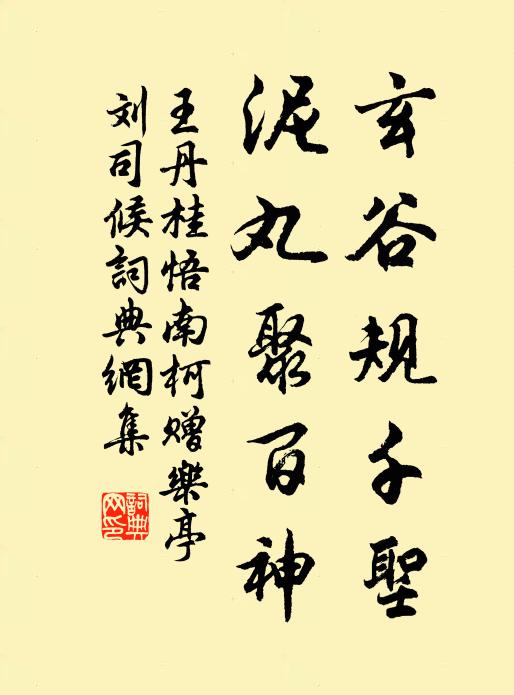 玄谷規千聖
泥丸聚百神
王丹桂悟南柯赠樂亭
刘司候詞典網集
詞典網印